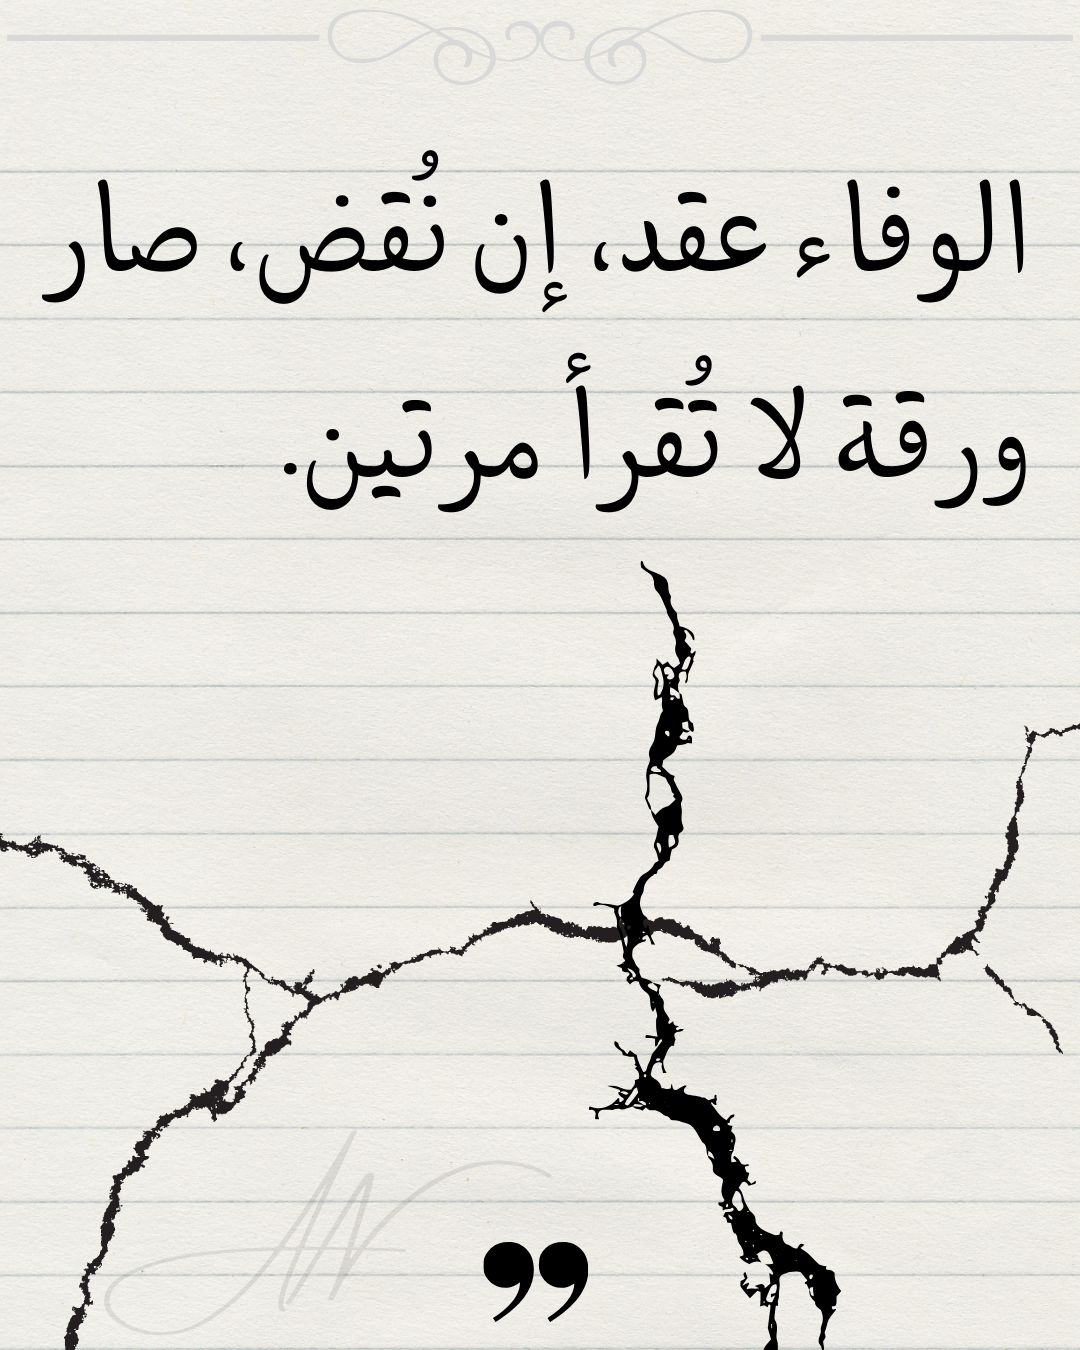 الوفاء عقد، إن نُقض، صار
ورقة لا تُقرأ مرتين.
”